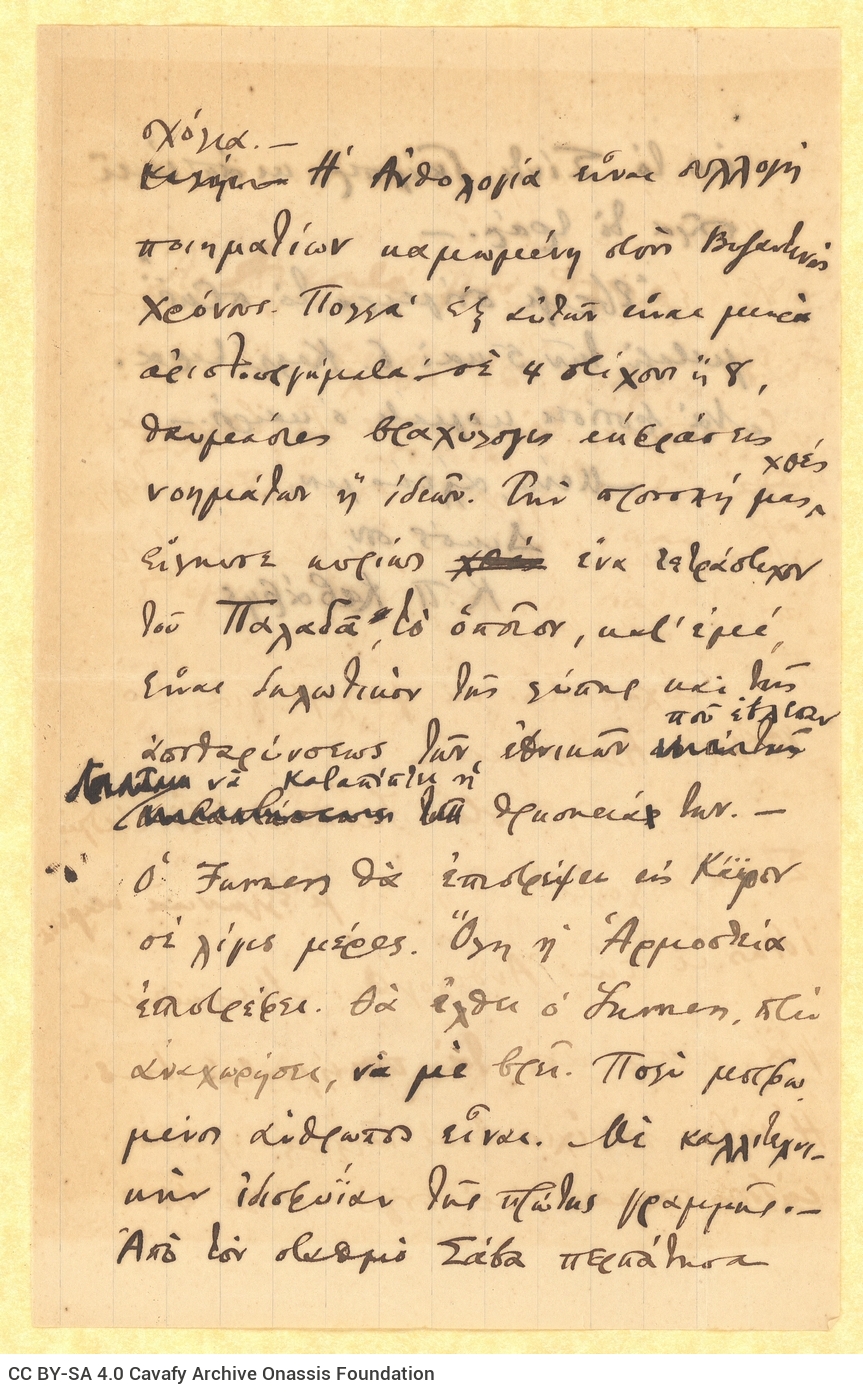 σχόλια. —
Η Ἀνθολογία εἶναι συλλογή
ποιηματίων καμωμένη στοὺς Βυζαντινοὺς
χρόνους. Πολλὰ ἐξ αὐτῶν εἶναι μικρὰ
ἀριστουργήματα· — σὲ 4 στίχους ἢ 8,
θαυμάσιες βραχύλογες ἐκφράσεις
νοημάτων ἢ ἰδεῶν. Τὴν προσοχή μας χθές
εἵλκυσε κυρίως ἕνα τετράστιχον
τοῦ Παλλαδᾶ, τὸ ὁποῖον, κατ' ἐμέ,
εἶναι δηλωτικὸν τῆς λύπης καὶ τῆς
ἀποθαρύνσεως τῶν ἐθνικῶν ποῦ ἔβλεπαν
νὰ καταπίπτει ἡ
θρησκεία των. —
Ὁ Furness θὰ ἐπιστρέψει εἰς Κάϊρον
σὲ λίγες μέρες. Ὅλη ἡ Ἁρμοστεία
ἐπιστρέφει. Θὰ ἔλθει ὁ Furness, πρὶν
ἀναχωρήσει, νὰ μὲ βρεῖ. Πολὺ μορφω
μένος ἄνθρωπος εἶναι. Μὲ καλλιτεχνι-
κὴν ἰδιοφυΐαν τῆς πρώτης γραμμῆς. —
Ἀπὸ τὸν σταθμὸ Σάβα περπάτησα
CC BY-SA 4.0 Cavafy Archive Onassis Foundation